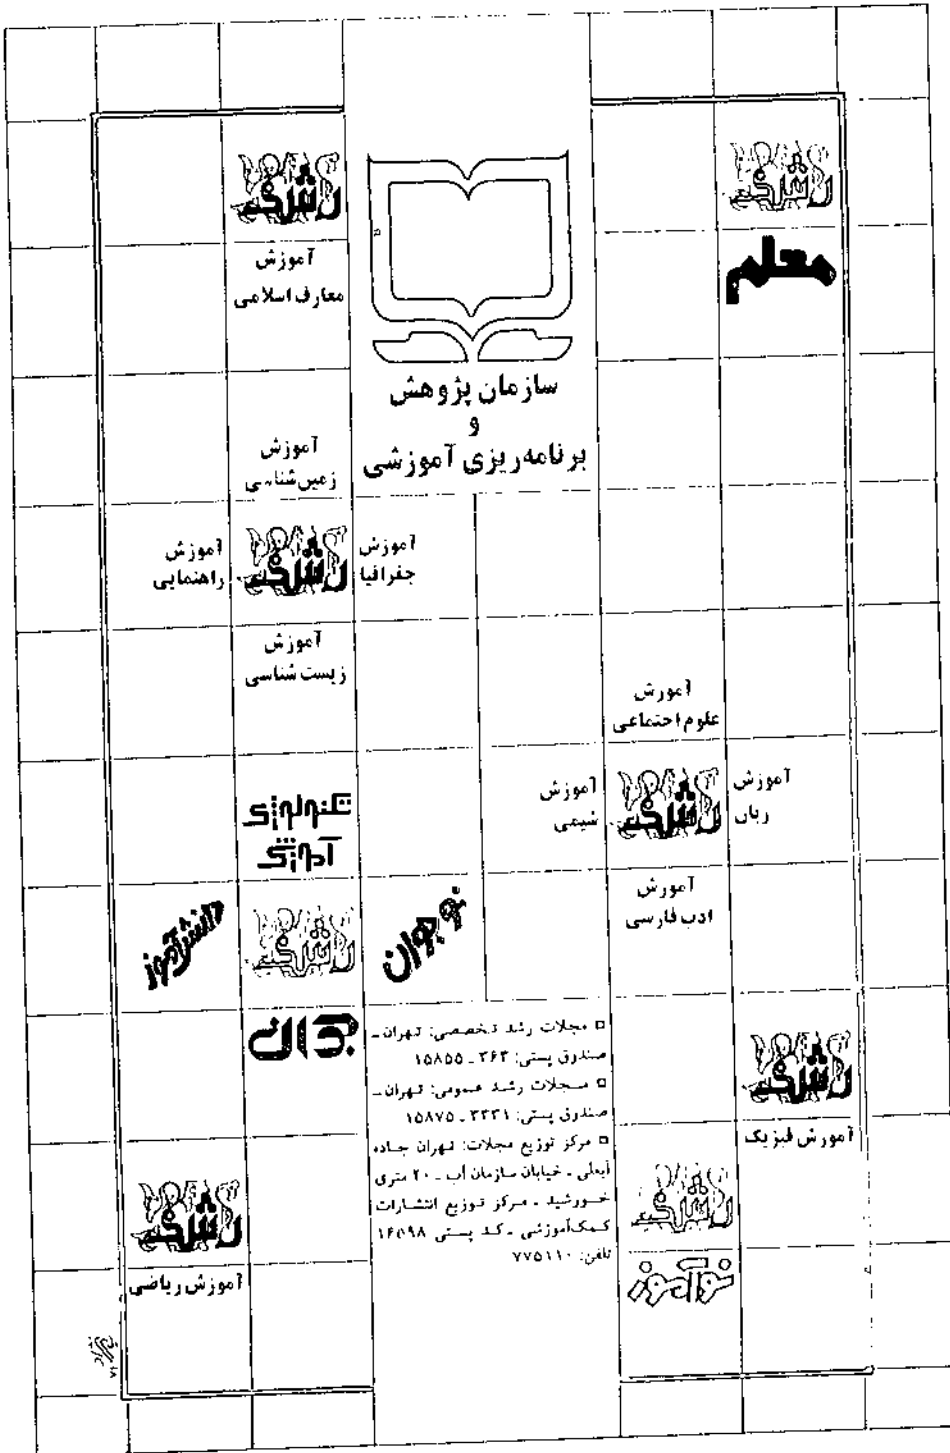 رشد
معلم
رشد
آموزش
معارف اسلامی
سازمان پژوهش
و
برنامه‌ریزی آموزشی
آموزش
زمین‌شناسی
آموزش
جغرافیا
رشد
آموزش
راهنمایی
آموزش
زیست شناسی
آموزش
علوم اجتماعی
آموزش
زبان
رشد
آموزش
شیمی
آموزش
ادب فارسی
تکنولوژی
آموزشی
نوجوان
رشد
دانش‌آموز
جوان
▫ مجلات رشد تخصصی: تهران ـ
صندوق پستی: ۳۶۳ ـ ۱۵۸۵۵
▫ مجلات رشد عمومی: تهران ـ
صندوق پستی: ۳۳۳۱ ـ ۱۵۸۷۵
▫ مرکز توزیع مجلات: تهران جاده
آبعلی ـ خیابان سازمان آب ـ ۲۰ متری
خورشید ـ مرکز توزیع انتشارات
کمک‌آموزشی ـ کد پستی ۱۶۵۹۸
تلفن: ۷۷۵۱۱۰
رشد
آموزش فیزیک
رشد
نوآموز
رشد
آموزش ریاضی